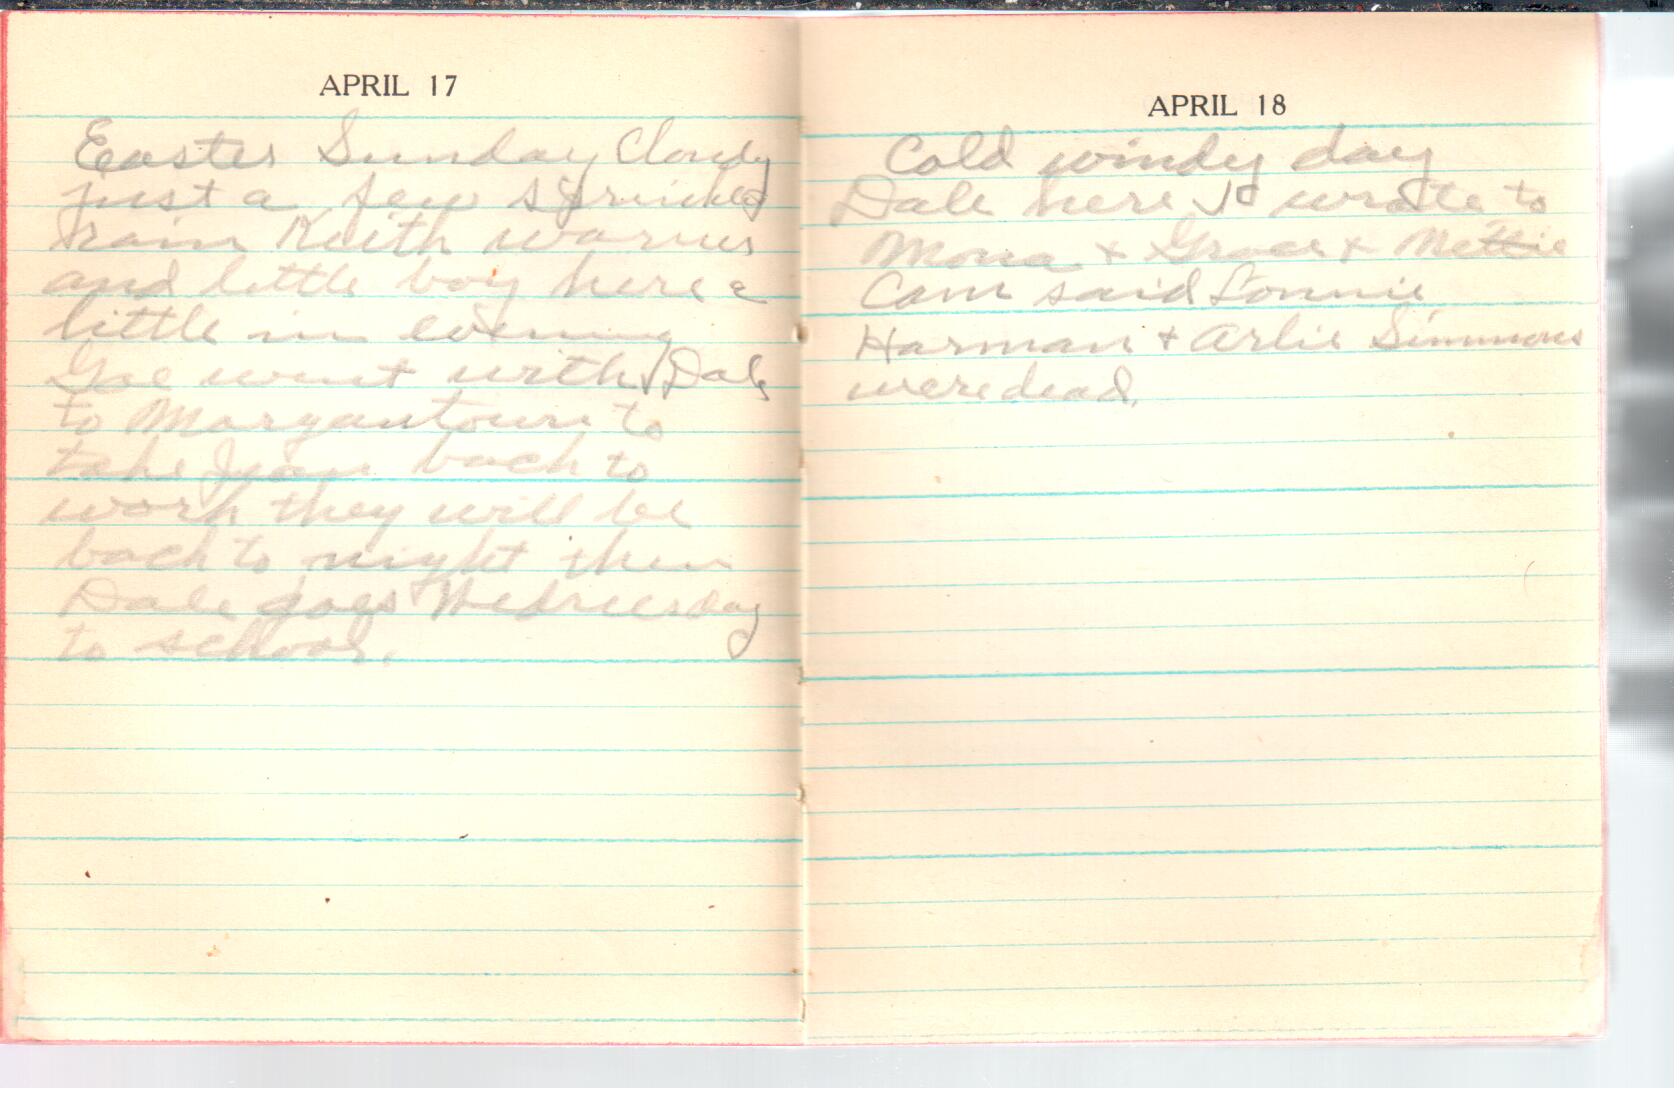 APRIL 17
Easter Sunday Cloudy
just a few sprinkles
rain Keith warner
and little boy here a
little in evening
Gae went with Dale
to Morgantown to
take back to
work they will be
back to night then
Dale goes Wednesday
to school.
APRIL 18
Cold windy day
Dale here I wrote to
Mona + Grace + Nettie
Cam said Lonnie
Harman + Arlie Simmons
were dead.